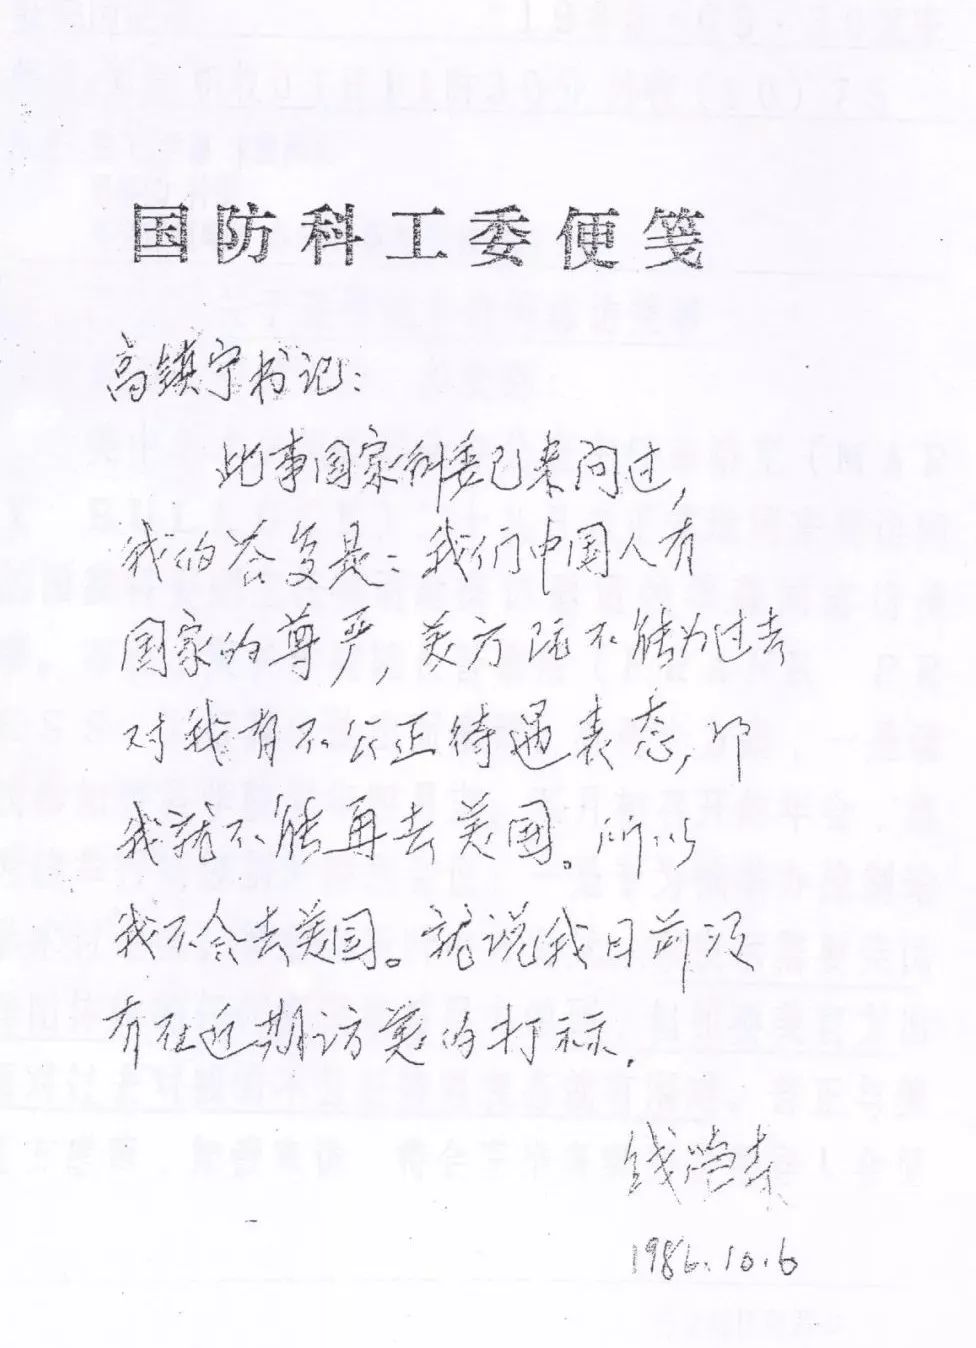 国防科工委便笺
高镇宁书记：
此事国家科委已来问过，
我的答复是：我们中国人有
国家的尊严，美方既不能为过去
对我有不公正待遇表态，那
我就不能再去美国。所以
我不会去美国。就说我目前没
有在近期访美的打算.
钱学森
1986.10.6